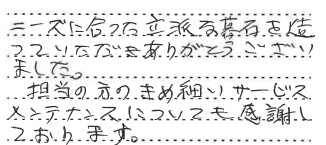 ニーズに合った立派な墓石を造
っていただきありがとうござい
ました。
担当の方のきめ細いサービス
メンテナンスについても感謝し
ております。